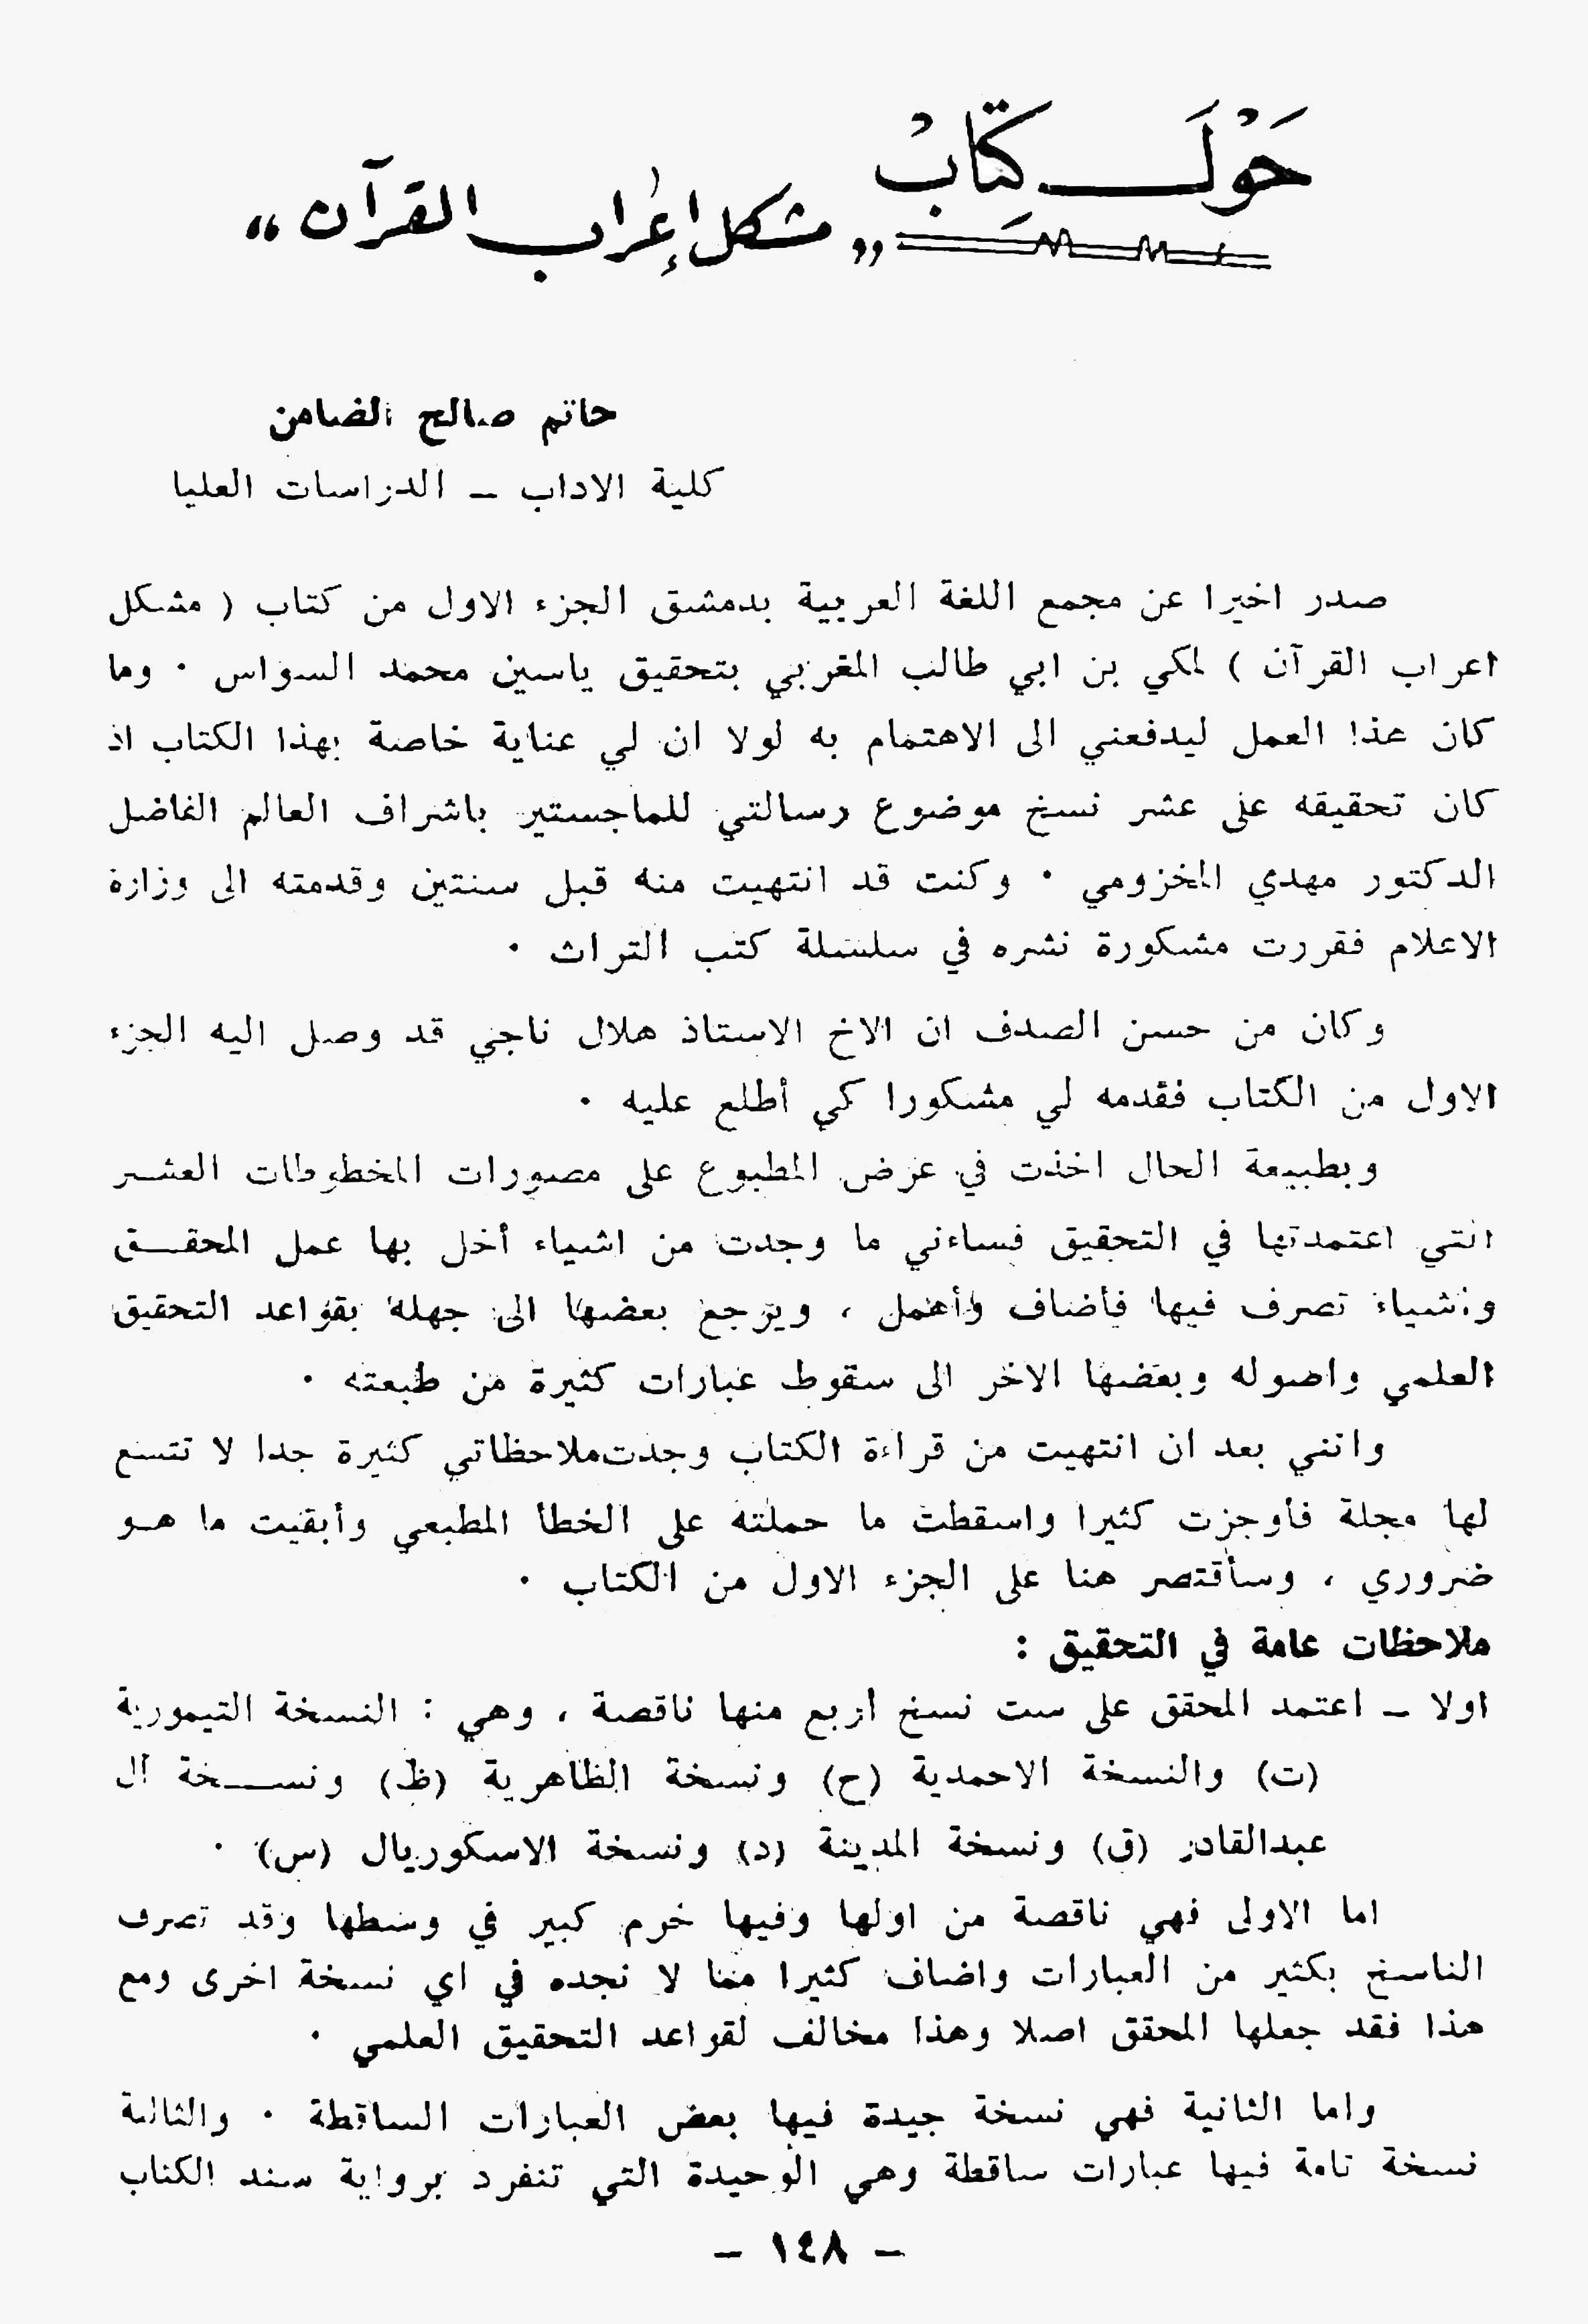 حَوْلَ كِتَابْ
„ مشكل إعراب القرآن “
حاتم صالح الضامن
كلية الاداب – الدراسات العليا
صدر اخيرا عن مجمع اللغة العربية بدمشق الجزء الاول من كتاب ( مشكل
اعراب القرآن ) لمكي بن ابي طالب المغربي بتحقيق ياسين محمد السواس ٠ وما
كان هذا العمل ليدفعني الى الاهتمام به لولا ان لي عناية خاصة بهذا الكتاب اذ
كان تحقيقه على عشر نسخ موضوع رسالتي للماجستير باشراف العالم الفاضل
الدكتور مهدي المخزومي ٠ وكنت قد انتهيت منه قبل سنتين وقدمته الى وزارة
الاعلام فقررت مشكورة نشره في سلسلة كتب التراث ٠
وكان من حسن الصدف ان الاخ الاستاذ هلال ناجي قد وصل اليه الجزء
الاول من الكتاب فقدمه لي مشكورا كي أطلع عليه ٠
وبطبيعة الحال اخذت في عرض المطبوع على مصورات المخطوطات العشر
التي اعتمدتها في التحقيق فساءني ما وجدت من اشياء أخل بها عمل المحقق
وأشياء تصرف فيها فأضاف وأهمل ، ويرجع بعضها الى جهله بقواعد التحقيق
العلمي واصوله وبعضها الاخر الى سقوط عبارات كثيرة من طبعته ٠
وانني بعد ان انتهيت من قراءة الكتاب وجدت ملاحظاتي كثيرة جدا لا تتسع
لها مجلة فأوجزت كثيرا واسقطت ما حملته على الخطأ المطبعي وأبقيت ما هو
ضروري ، وسأقتصر هنا على الجزء الاول من الكتاب ٠
ملاحظات عامة في التحقيق :
اولا – اعتمد المحقق على ست نسخ اربع منها ناقصة ، وهي : النسخة التيمورية
(ت) والنسخة الاحمدية (ح) ونسخة الظاهرية (ظ) ونسخة آل
عبدالقادر (ق) ونسخة المدينة (د) ونسخة الاسكوريال (س) ٠
اما الاولى فهي ناقصة من اولها وفيها خرم كبير في وسطها وقد تصرف
الناسخ بكثير من العبارات واضاف كثيرا مما لا نجده في اي نسخة اخرى ومع
هذا فقد جعلها المحقق اصلا وهذا مخالف لقواعد التحقيق العلمي ٠
واما الثانية فهي نسخة جيدة فيها بعض العبارات الساقطة ٠ والثالثة
نسخة تامة فيها عبارات ساقطة وهي الوحيدة التي تنفرد برواية سند الكتاب
– ١٤٨ –